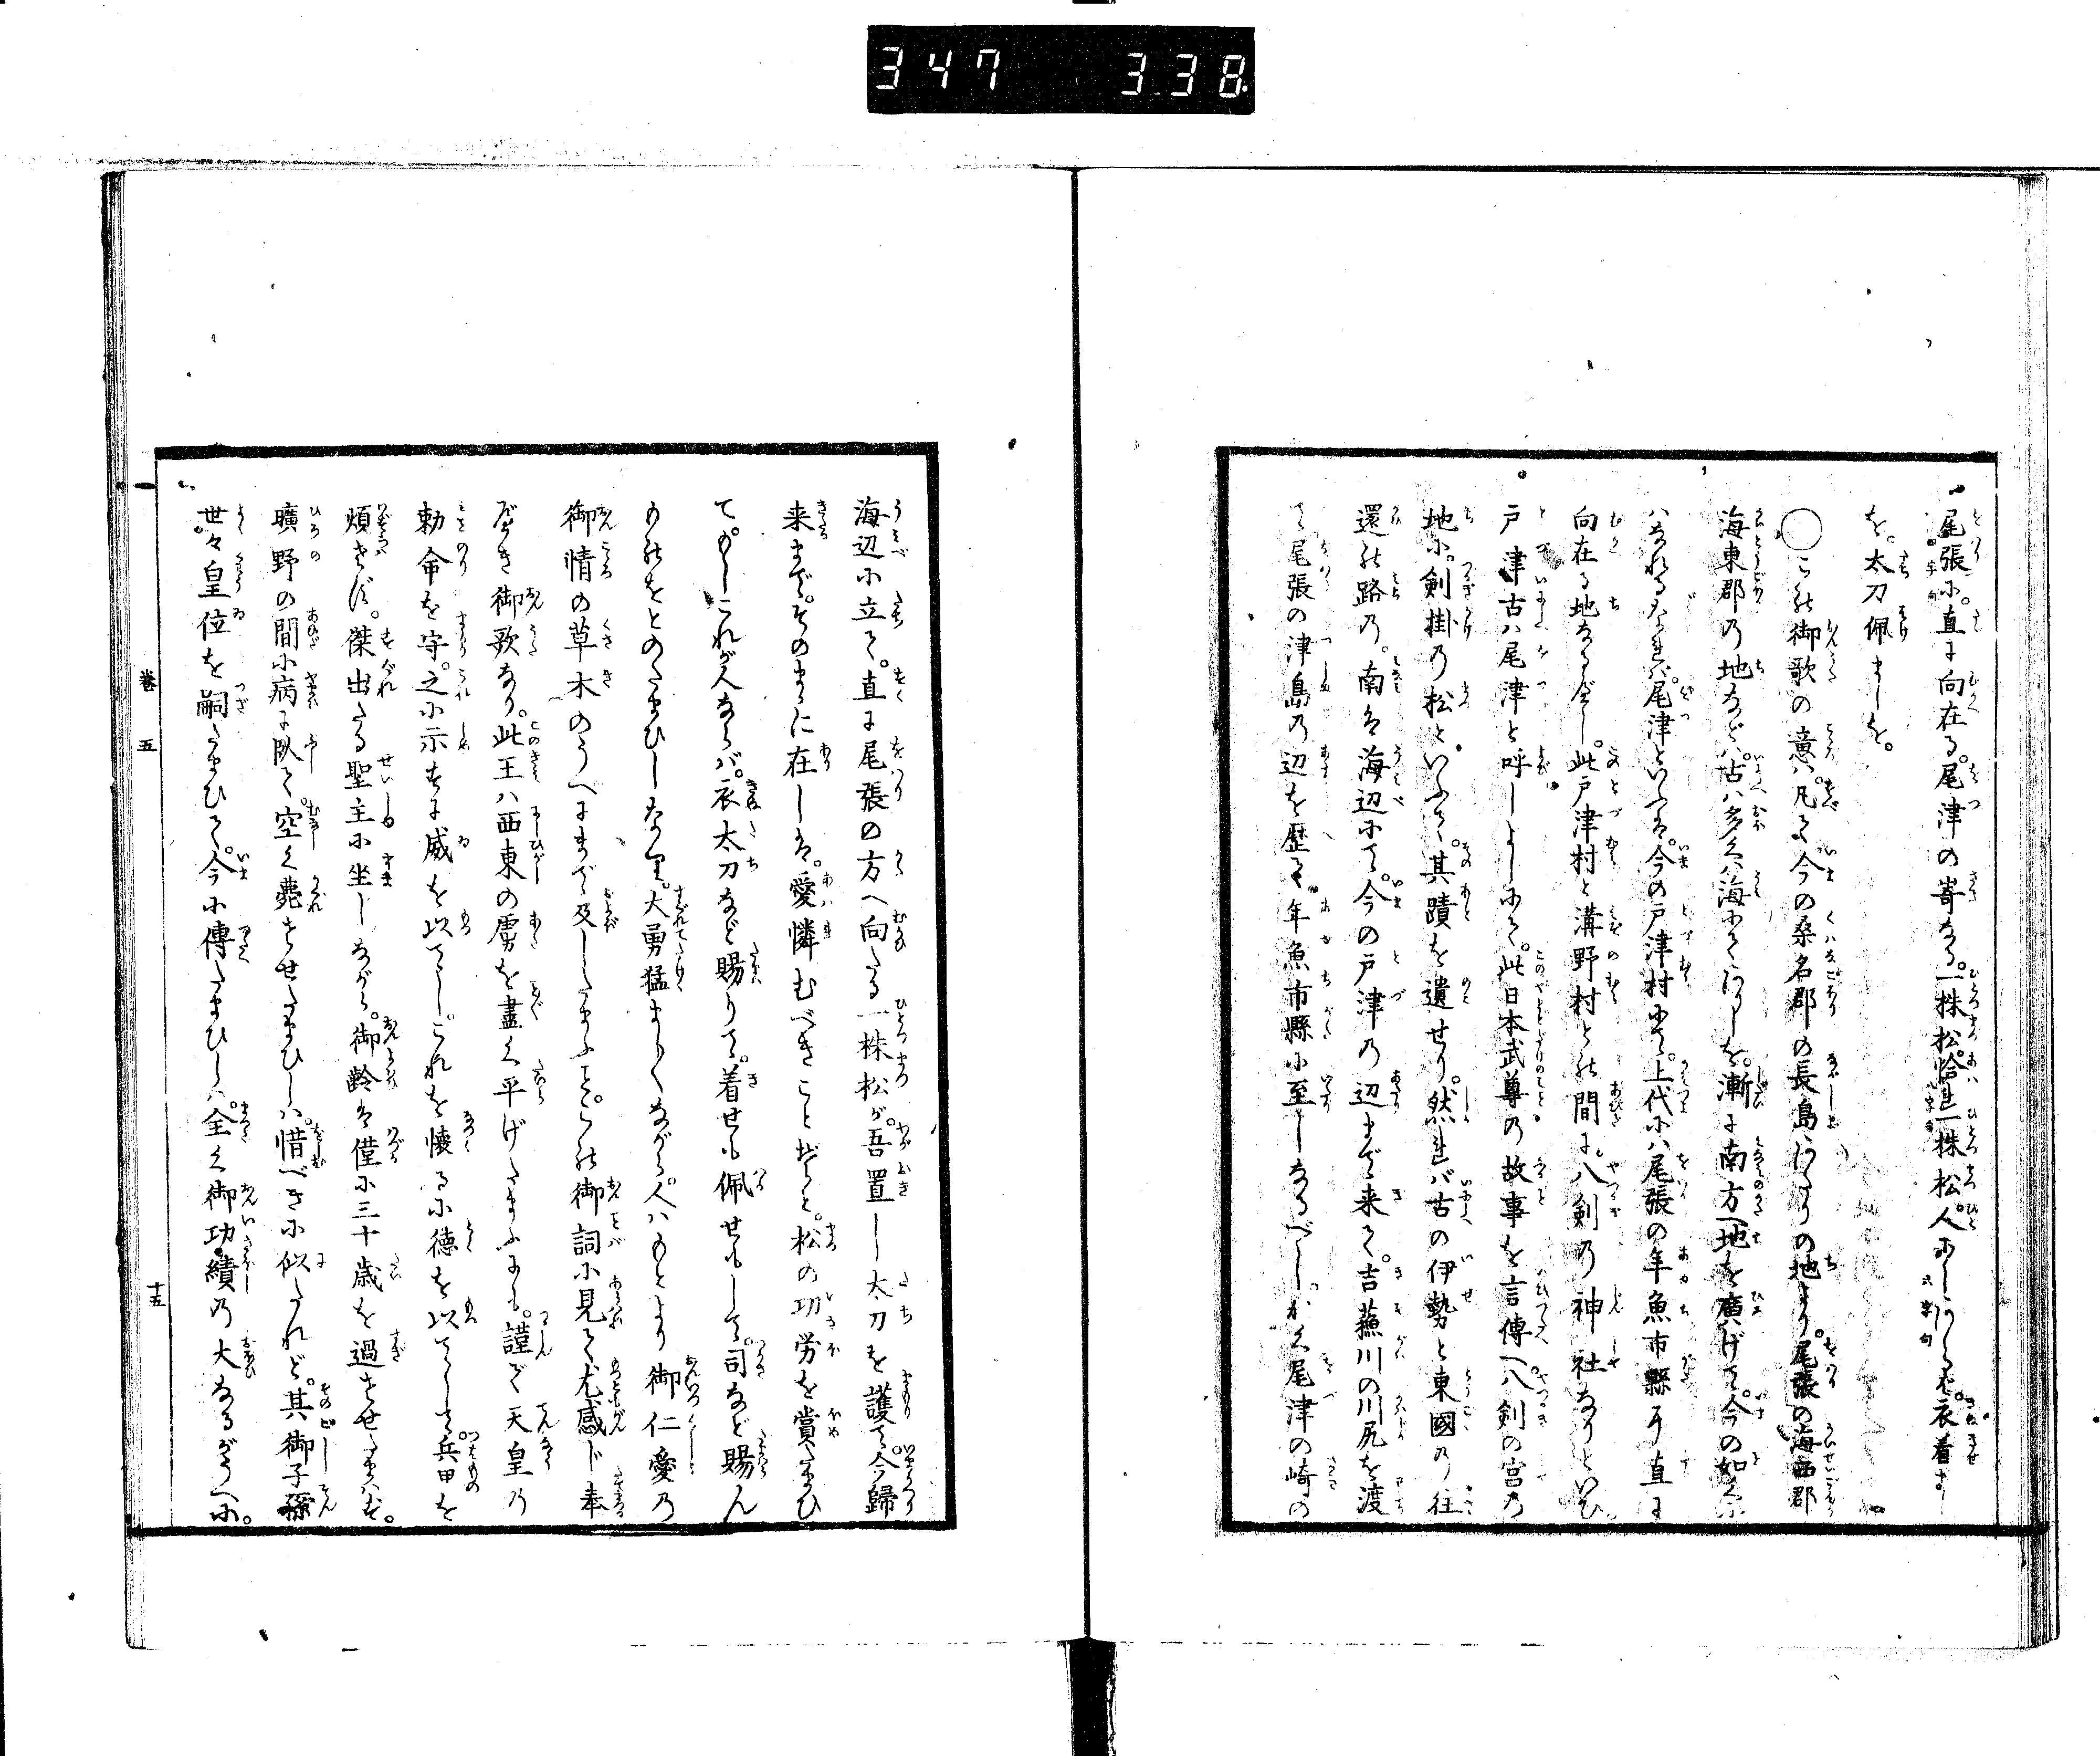 347 338
尾張に。直に向在る。尾津の嵜なる。一株松。恰。一株松。人にしありせば。衣着まし
を。太刀佩ましを。
○この御歌の意は。凡て今の桑名郡の長島わたりの地より。尾張の海西郡
海東郡の地などは。古は多くは海にてありしを。漸に南方へ地を廣げて。今の如くに
はなれるなれば。尾津といふは。今の戸津村にて。上代には尾張の年魚市縣に直に
向在る地なるべし。此戸津村と溝野村との間に。八剣の神社なりといひ
戸津古は尾津と呼しよしにて。此日本武尊の故事を言傳へ。八剣の宮の
地に。剣掛の松といふて。其蹟を遺せり。然ればば古の伊勢と東國の往
還の路の。南は海辺にて。今の戸津の辺まで来て。吉蘓川の川尻を渡
て尾張の津島の辺を歴て。年魚市縣に至しなるべし。かく尾津の崎の
海辺に立て。直に尾張の方へ向たる一株松が。吾置し太刀を護て。今歸
来まで。そのまゝに在しは。愛憐むべきことぞと。松の功労を賞たまひ
て。もしこれが人ならば。衣太刀など賜りて。着せも佩せもして。司など賜ん
ものをとのたまひしなり。大勇猛ましくながら。人はもとより御仁愛の
御情の草木のうへにまで及したまふこと。この御詞に見えて尤感じ奉
べき御歌なり。此王は西東の虜を盡く平げたまふにも。謹で天皇の
勅命を守。之に示すに威を以てし。これを懐るに徳を以てして。兵甲を
煩さず。傑出たる聖主に坐しながら。御齢は僅に三十歳を過させたまはず。
曠野の間に病に臥て。空く薨させたまひしは。惜べきに似たれど。其御子孫
世々皇位を嗣たまひて。今に傳たまひしは。全く御功績の大なるがうへに。
巻五 十五